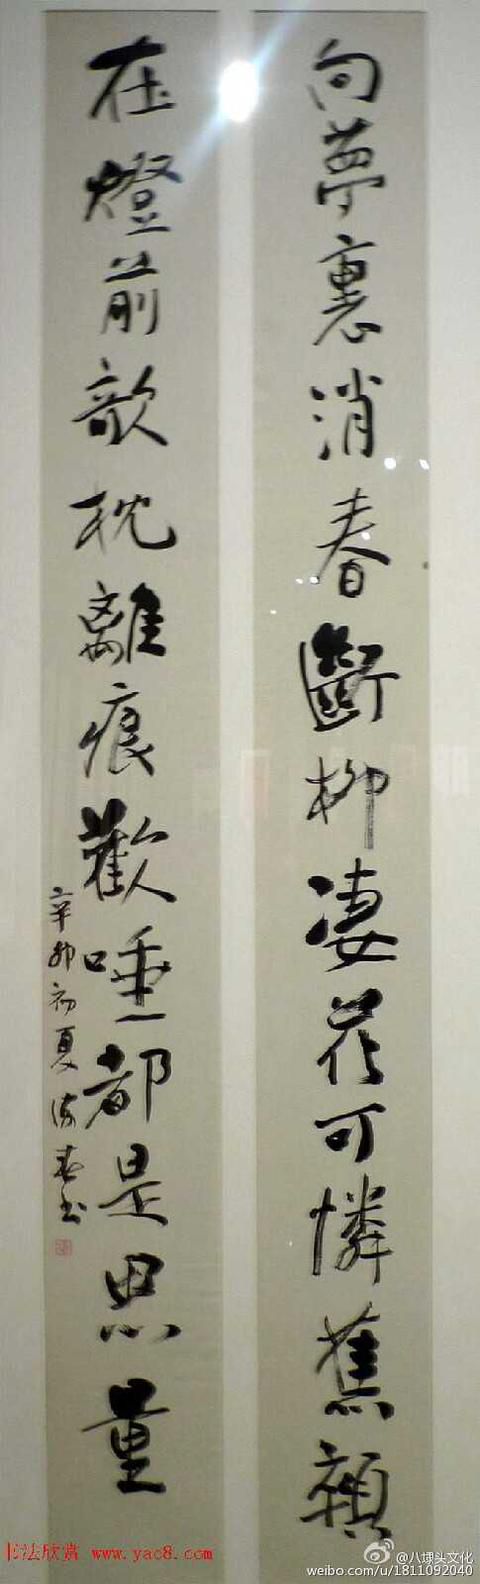 向夢裏消春斷柳淒花可憐蕉顇
在燈前欹枕離痕歡唾都是思量
辛卯初夏
书法欣赏 www.yac8.com
@八埭头文化
weibo.com/u/1811092040